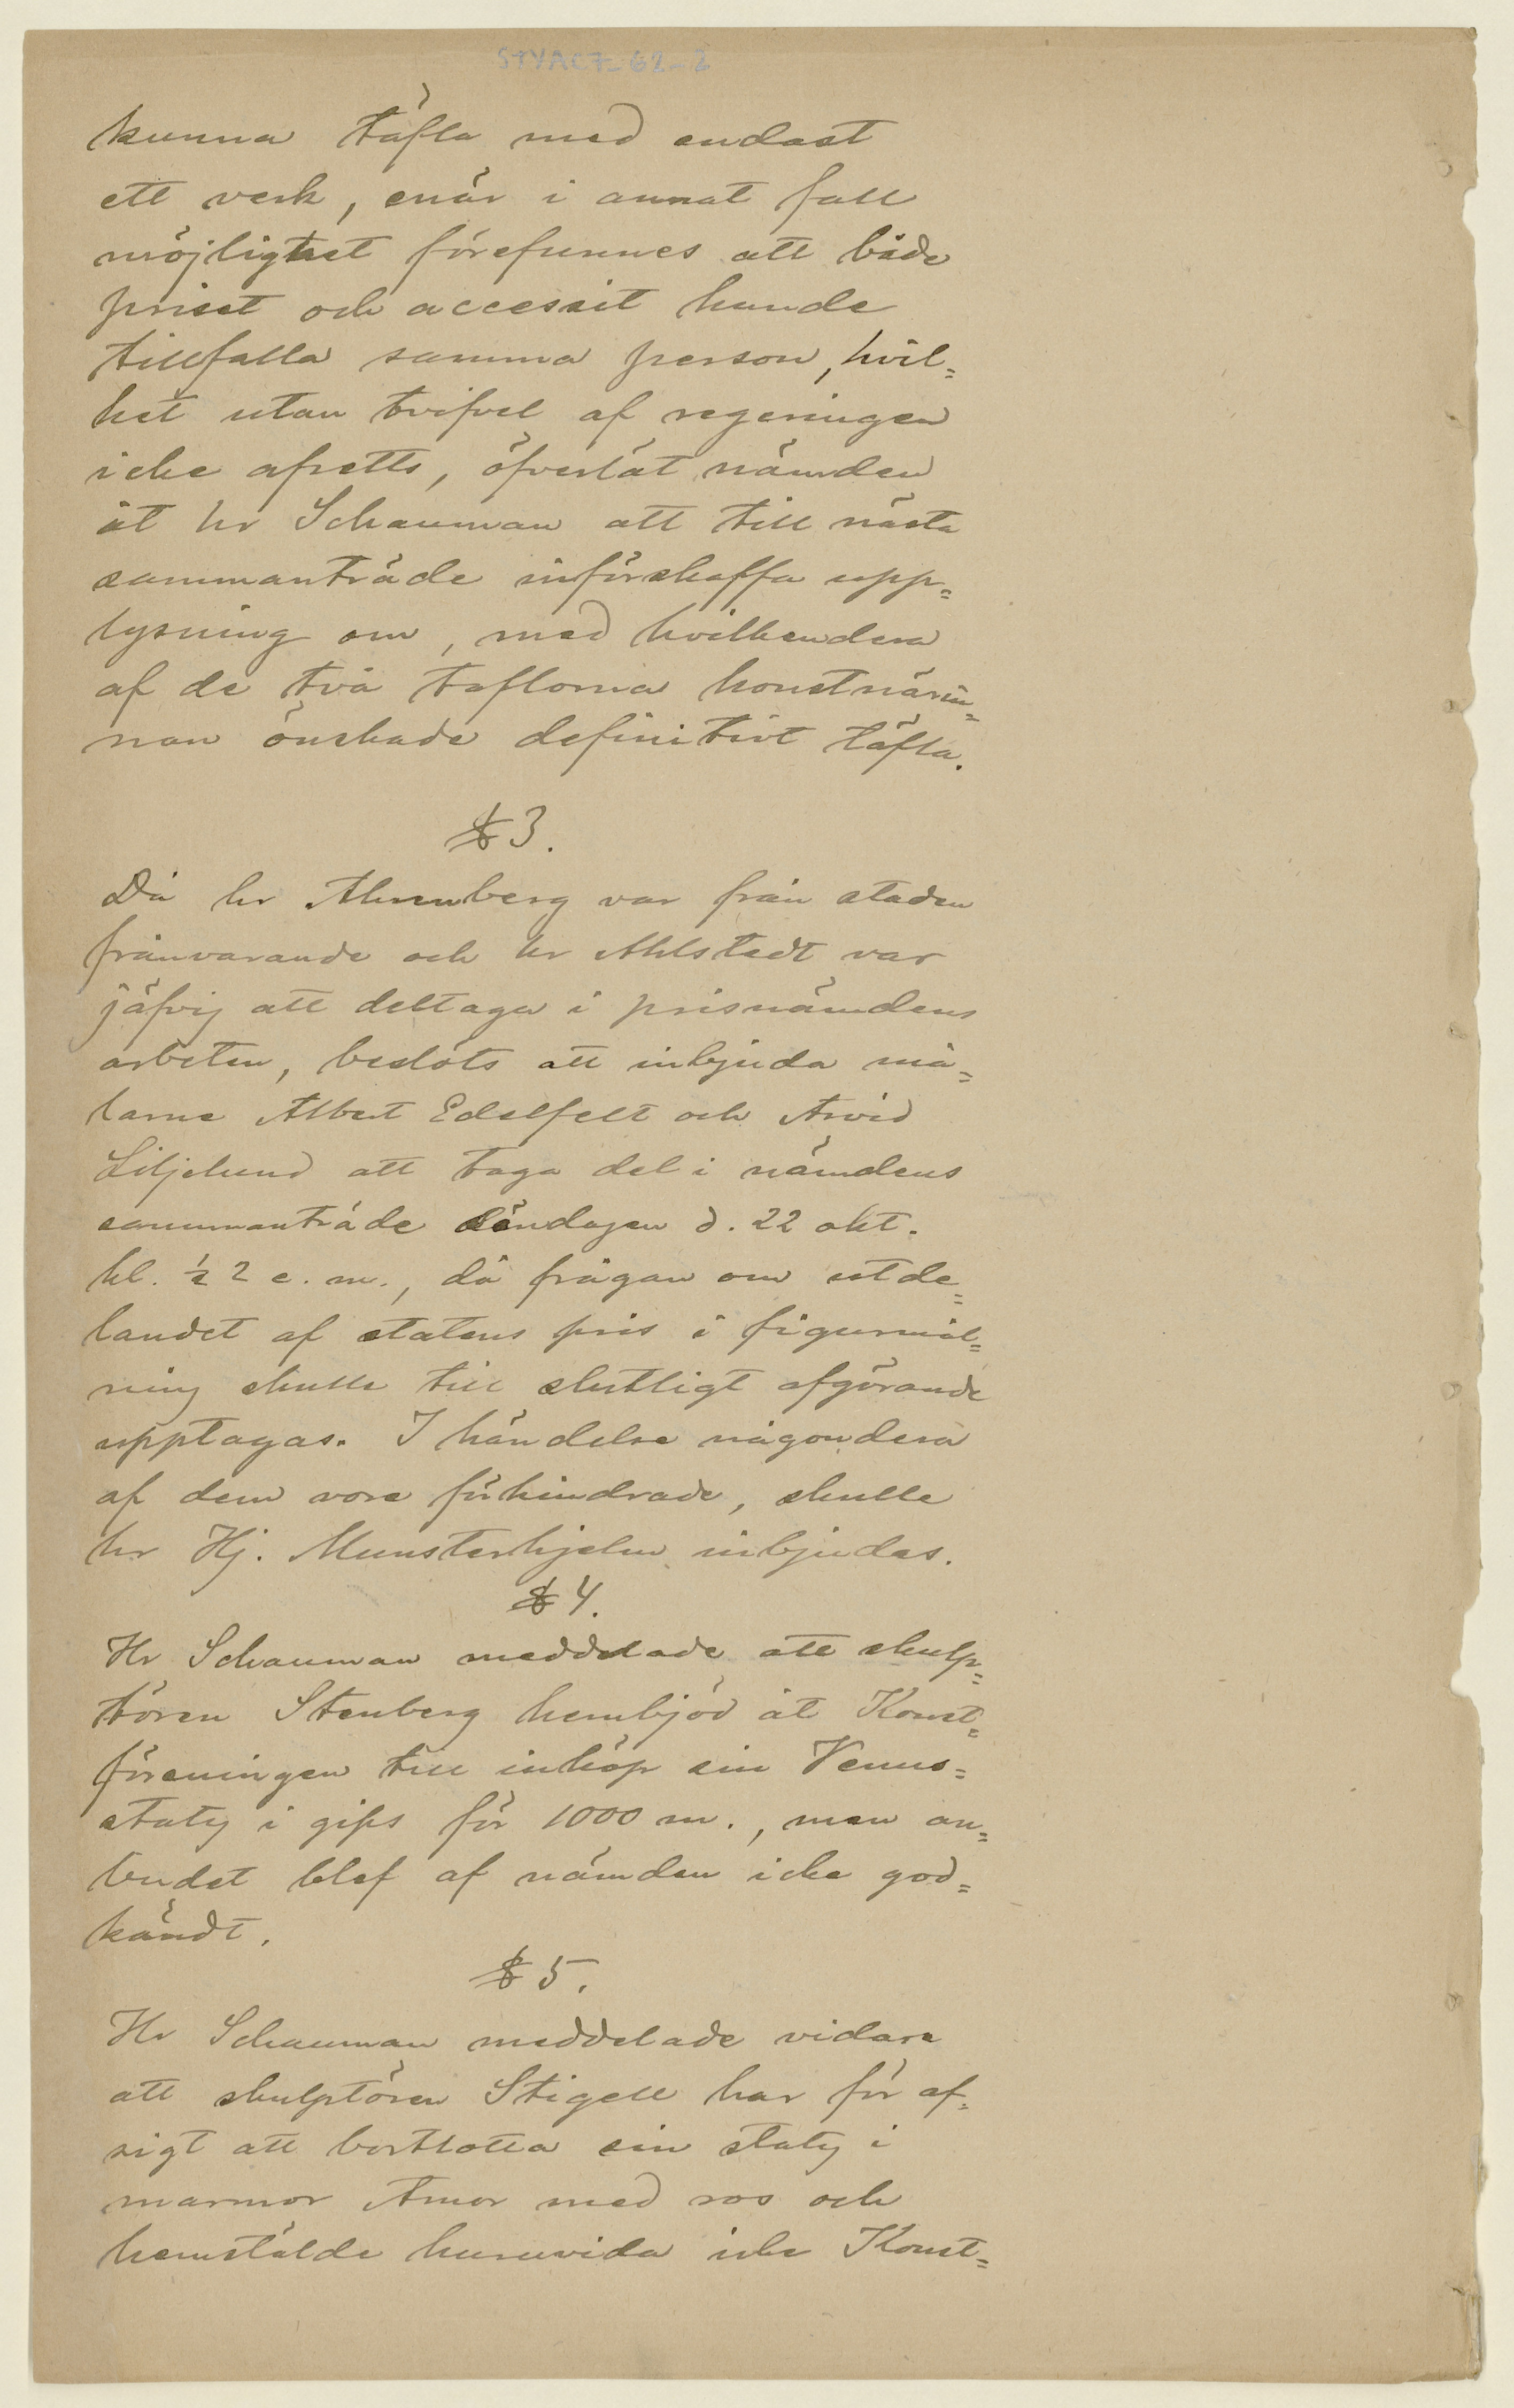 STYAC7-62-2
kunna täfla med endast
ett verk, enär i annat fall
möjlighet förefunnes att både
priset och accessit kunde
tillfalla samma person, hvil=
ket utan tvifvel af regeringen
icke afsetts, öfverlät nämden
åt hr Schauman att till nästa
sammanträde införskaffa upp=
lysning om, med hvilkendera
af de två taflorna konstnärin=
nan önskade definitivt täfla.
§ 3.
Då hr Ahrenberg var från staden
frånvarande och hr Ahlstedt var
jäfvig att deltaga i prisnämdens
arbeten, beslöts att inbjuda må=
larne Albert Edelfelt och Arvid
Liljelund att taga del i nämdens
sammanträde söndagen d. 22 okt.
kl. ½ 2 e. m., då frågan om utde=
landet af statens pris i figurmål=
ning skulle till slutligt afgörande
upptagas. I händelse någondera
af dem vore förhindrade, skulle
hr Hj. Munsterhjelm inbjudas.
§ 4.
Hr Schauman meddelade att skulp=
tören Stenberg hembjöd åt Konst=
föreningen till inköp sin Venus=
staty i gips för 1000 m., men an=
budet blef af nämden icke god=
kändt.
§ 5.
Hr Schauman meddelade vidare
att skulptören Stigell har för af=
sigt att bortlotta sin staty i
marmor Amor med ros och
hemstälde huruvida icke Konst=